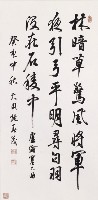 林暗草驚風將軍
夜引弓平明尋白羽
沒在石稜中 盧綸
癸 中秋